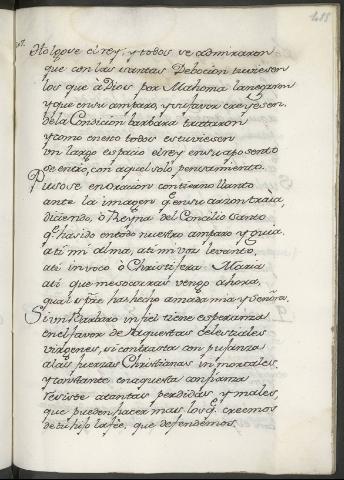 485
Holgose el rey, y todos se admiraron
que con las santas Debocion tuviesen
los que à Dios por Mahoma
y que en su amparo, y su favor creyesen.
de la Condicion barbara trataron
y como en esto todos estuviesen
un largo espacio el rey en su aposento
se entrò, con aquel solo pensamiento.
Pusose en oracion con tierno llanto
ante la imagen q.e en su arzon traia,
diciendo, ò Reyna del Concilio santo
q.e has sido en todo nuestro amparo y guia,
ati mi alma, ati mi voz levanto,
ati invoco ò Christifera Maria
ati que me socorras vengo ahora,
qual sp̃re has hecho amada mia y Señora.
Si un Barbaro infiel tiene esperanza
en el favor de Aquestas celestiales
virgenes, si contrasta con pujanza
a las fuerzas Christianas inmortales,
y constante en aquesta confianza
resiste a tantas perdidas, y males,
que pueden hacer mas los q.e creemos
de tu hijo la fèe, que defendemos.